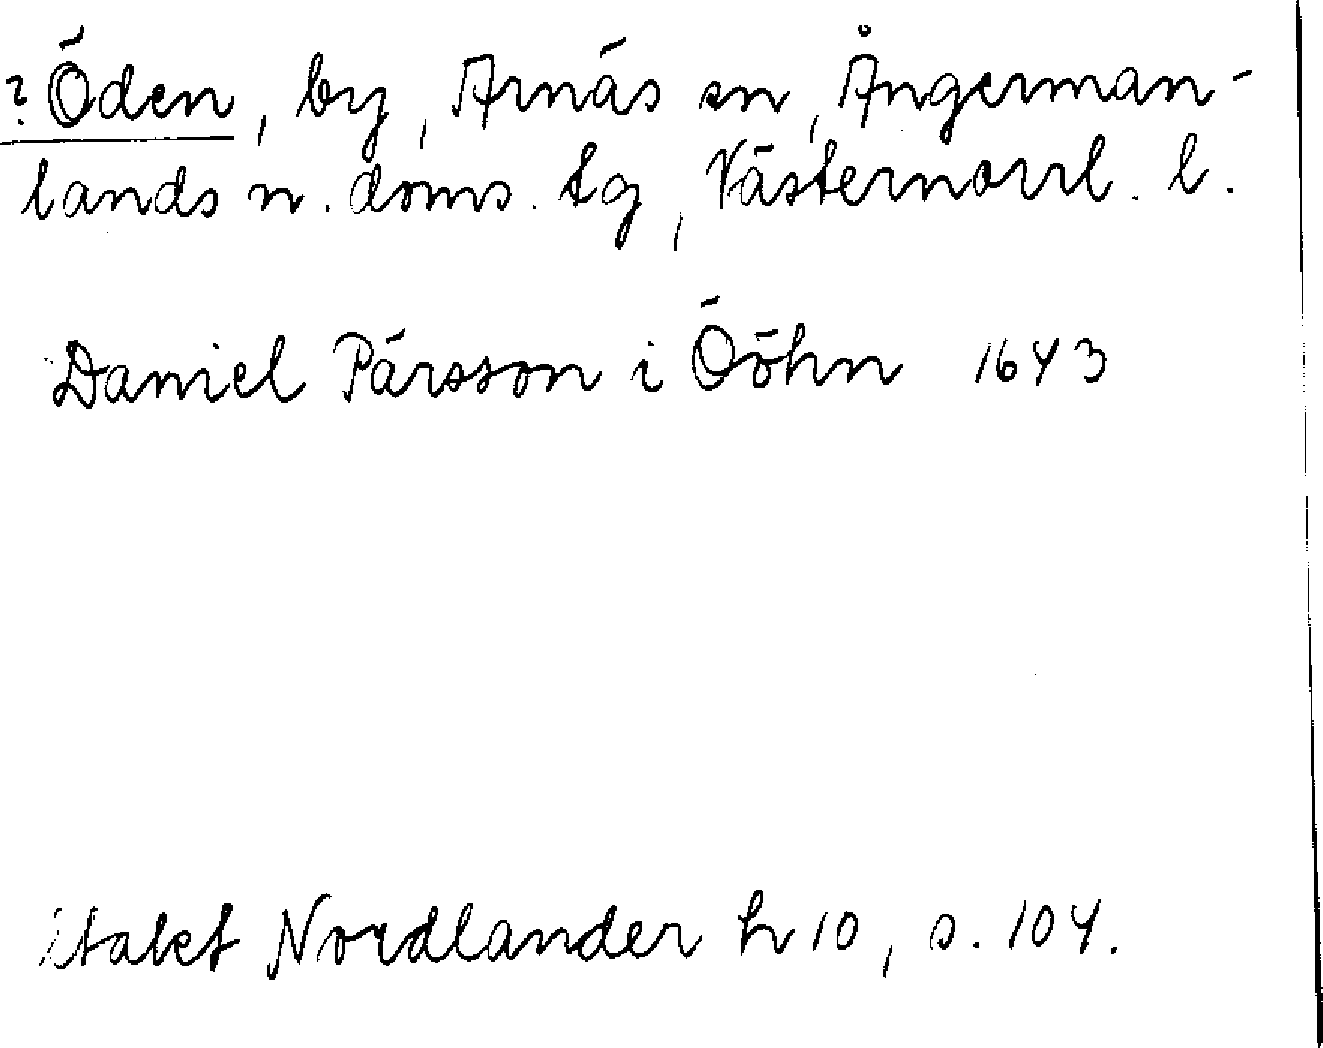 ? Öden, by, Arnäs sn, Ångerman-
lands n. doms. tg, Västernorrl. l.
Daniel Pärsson i Ööhn 1643
citatet Nordlander h 10, s. 104.